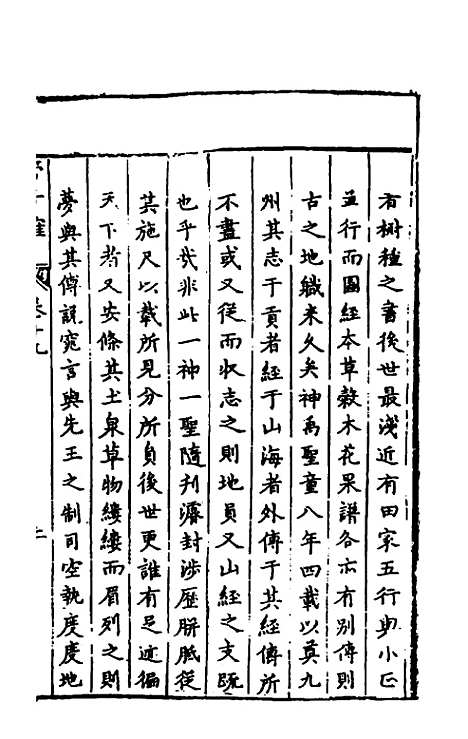 有樹種之書後世最淺近有田家五行與小正
並行而圖經本草穀木花果譜各亦有別傳則
古之地職來久矣神禹聖童八年四載以奠九
州其志于貢者經于山海者外傳于其經傳所
不盡或又從而收志之則地員又山經之支既
也乎哉非此一神一聖隨刋濬封涉歷胼胝從
其施尺以載所見分所負後世更誰有足迹徧
天下者又安條其土泉草物縷縷而眉列之則
夢與其傳說寃言與先王之制司空執度度地
卷十九